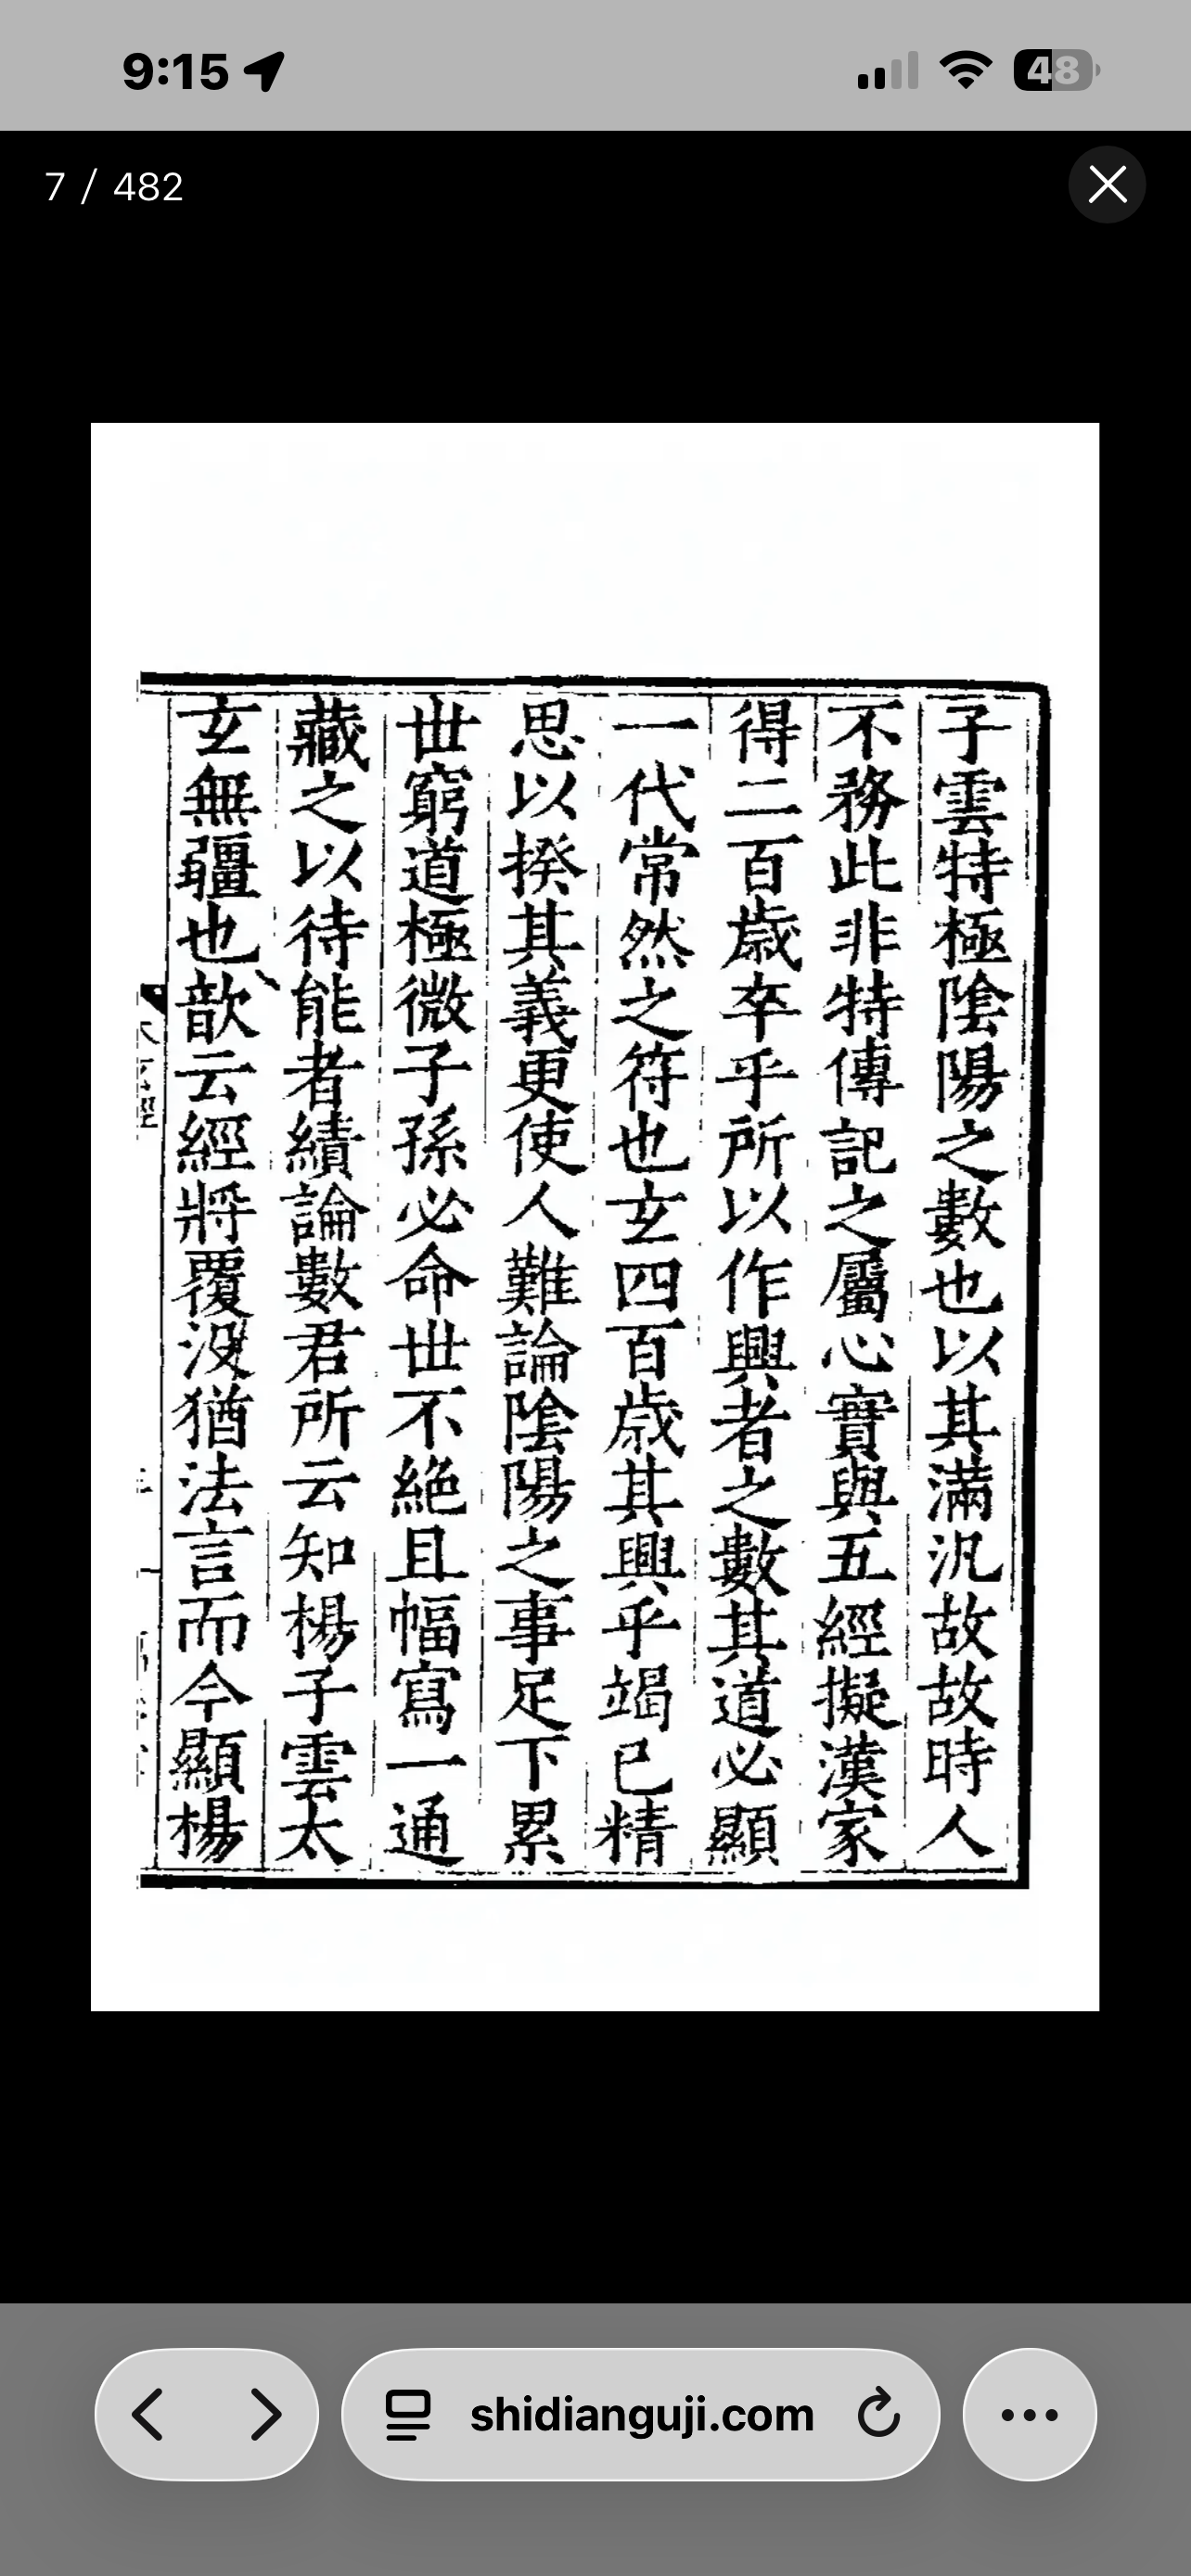 9:15
48
7 / 482
子雲特極陰陽之數也以其滿汎故故時人
不務此非特傳記之屬心實與五經擬漢家
得二百歲卒乎所以作興者之數其道必顯
一代常然之符也玄四百歲其興乎竭己精
思以揆其義更使人難論陰陽之事足下累
世窮道極微子孫必命世不絕且幅寫一通
藏之以待能者績論數君所云知楊子雲太
玄無疆也歆云經將覆沒猶法言而今顯楊
shidianguji.com